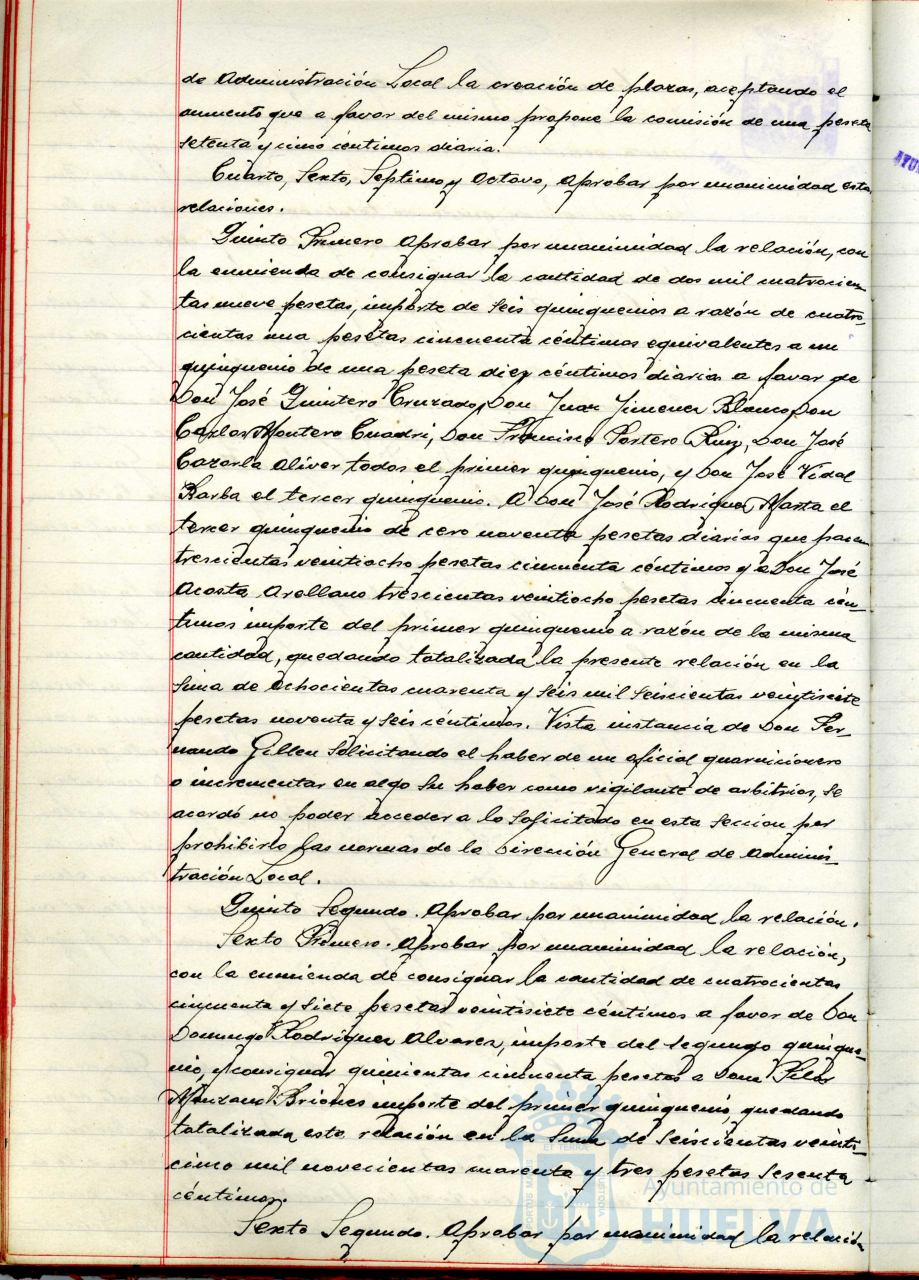 de Administración Local la creación de plazas, aceptando el
aumento que a favor del mismo propone la comisión de una peseta
setenta y cinco céntimos diaria.
Cuarto, Sexto, Septimo y Octavo, Aprobar por unanimidad estas
relaciones.
Quinto Primero Aprobar por unanimidad la relación, con
la enmienda de consignar la cantidad de dos mil cuatrocien
tas nueve pesetas, importe de seis quinquenios a razón de cuatro-
cientas una pesetas cincuenta céntimos equivalentes a un
quinquenio de una peseta diez céntimos diarias a favor de
Don José Quintero Cruzado, Don Juan Jimenez Blanco, Don
Carlos Montero Cuadri, Don Francisco Portero Ruiz, Don José
Cazorla Oliver todos el primer quinquenio, y Don José Vidal
Barba el tercer quinquenio. A Don José Rodriguez Marta el
tercer quinquenio de cero noventa pesetas diarias que hacen
trescientas veintiocho pesetas cincuenta céntimos y a Don José
Acosta Arellano trescientas veintiocho pesetas cincuenta cén-
timos importe del primer quinquenio a razón de la misma
cantidad, quedando totalizada la presente relación en la
suma de ochocientas cuarenta y seis mil seiscientas veintisiete
pesetas noventa y seis céntimos. Vista instancia de Don Fer-
nando Gillen solicitando el haber de un oficial guarnicionero
o incrementar en algo su haber como vigilante de arbitrios, se
acordó no poder acceder a lo solicitado en esta sección por
prohibirlo las normas de la Dirección General de Adminis-
tración Local.
Quinto Segundo. Aprobar por unanimidad la relación.
Sexto Primero. Aprobar por unanimidad la relación,
con la enmienda de consignar la cantidad de cuatrocientas
cincuenta y siete pesetas veintisiete céntimos a favor de Don
Domingo Rodriguez Alvarez, importe del segundo quinque-
nio, y consignar quinientas cincuenta pesetas a Dona Pilar
Manzano Briones importe del primer quinquenio, quedando
totalizada esta relación en la suma de seiscientas veinti-
cinco mil novecientas cuarenta y tres pesetas sesenta
céntimos.
Sexto Segundo. Aprobar por unanimidad la relación
Ayuntamiento de
HUELVA